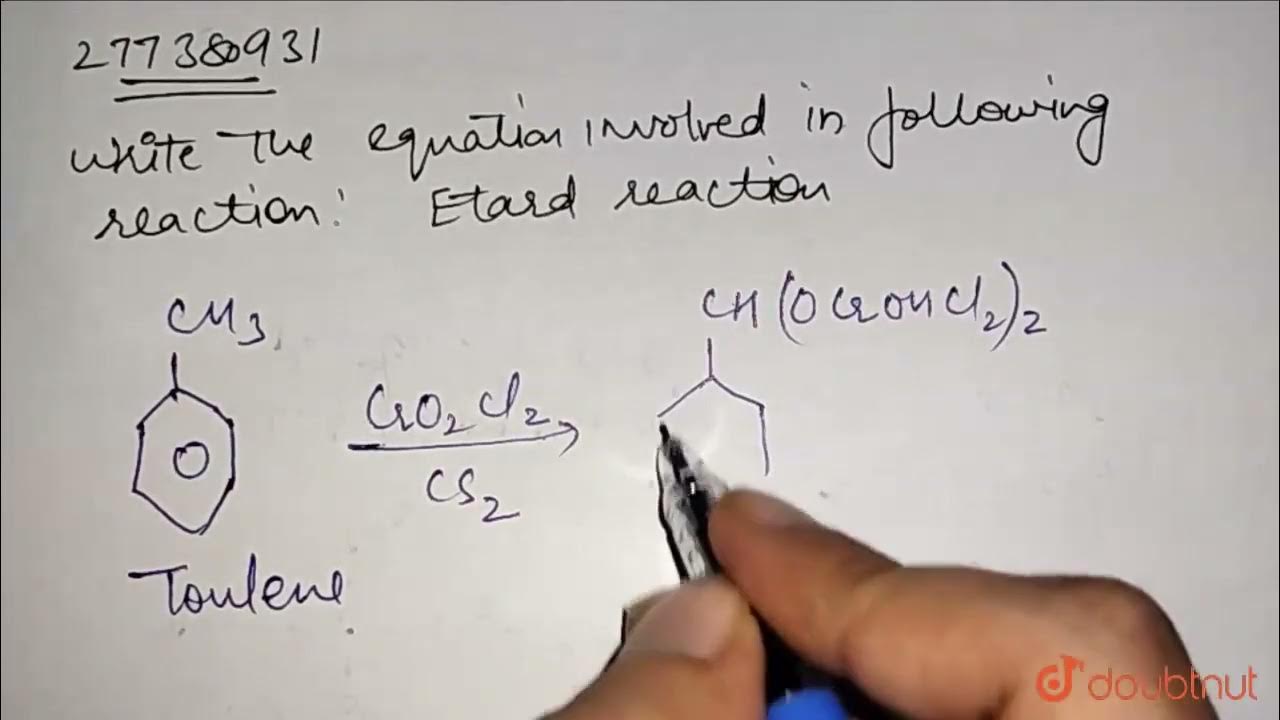 277380931
write The equation involved in following
reaction: Etard reaction
CH3
CrO2Cl2
CS2
CH(OCrOHCl2)2
Toulene
doubtnut